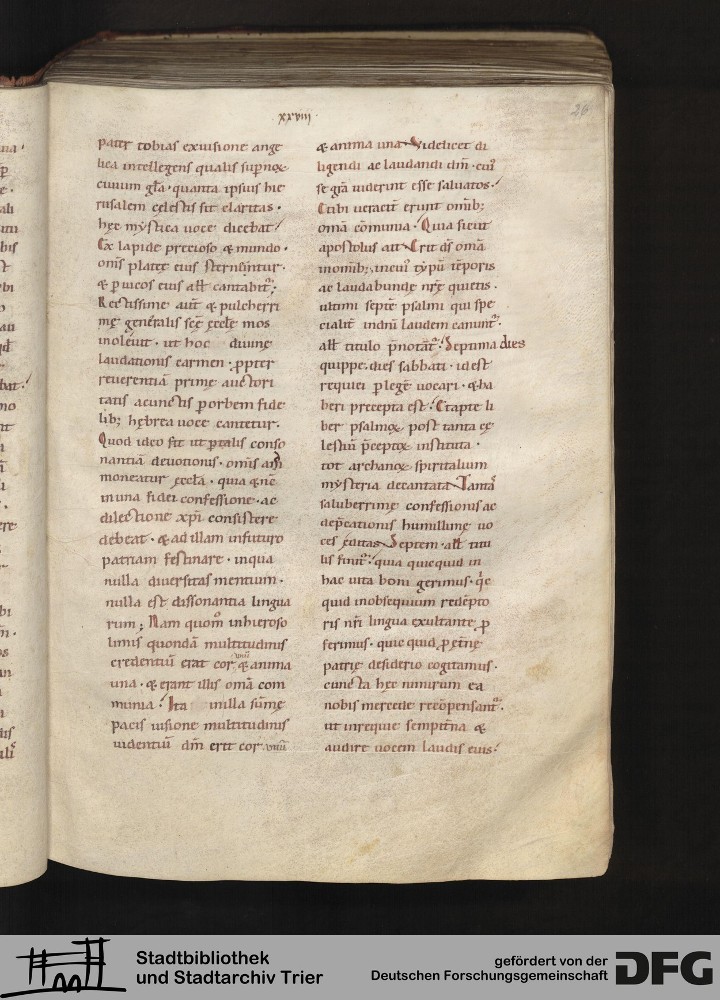 xxviii
26
pater tobias exuisione ange
lica intellegens qualis supnoꝝ
ciuium gła · quanta ipsius hie
rusalem cęlestis sit claritas ·
hęc mystica uoce dicebat!
Ex lapide precioso & mundo ·
om̄s platęę eius sternentur ·
& p uicos eius ałł cantabit̃;
Rectissime aut̄ & pulcherri
me generalis scę ęcclę mos
inoleuit · ut hoc diuinę
laudationis carmen · ꝓpter
reuerentiā primę auctori
tatis acunctis porbem fide
lib; hębrea uoce cantetur ·
Quod ideo fit ut ptalis conso
nantiā deuotionis · om̄is
moneatur ęccła · quia &nc̄
inuna fidei confessione · ac
dilectione xpi consistere
debeat · & ad illam infuturo
patriam festinare · inqua
nulla diuersitas mentium ·
nulla est dissonantia lingua
rum; Nam quom̄ inhieroso
limis quondā multitudinis
credentiū erat cor unū & anima
una · & erant illis omā com
munia! Ita inilla sūmę
pacis uisione multitudinis
uidentiū dm̄ erit cor unū
& anima una Videlicet di
ligendi ac laudandi dm̄ · cui'
se grā uiderint esse saluatos!
Et ibi ueracit̄ erunt om̄ib;
omā cōmunia · Quia sicut
apostolus ait Erit dš omā
inomīb; incui' typū tēporis
ac laudabundę nrę quietis ·
ultimi septē psalmi qui spe
cialit̄ indn̄i laudem canunt̃ ·
ałł titulo p̄notāt̃! Septima dies
quippe dies sabbati · idest
requiei p legē uocari · & ha
beri precepta est! Et apte li
ber psalmoꝝ post tanta cę
lestiū p̄ceptoꝝ instituta ·
tot archanoꝝ spiritalium
mysteria decantata Tanta'
saluberrimę confessionis ac
dep̄cationis humillimę uo
ces ęditas Septem · ałł titu
lis finit̃! quia quicquid in
hac uita boni gerimus · qic
quid inobsequium redēpto
ris nr̄i lingua exultante p
ferimus · quicquid ꝓ ęt̄nę
patrię desiderio cogitamus ·
cuncta hęc nimirum ea
nobis mercede recōpensant̃ ·
ut inrequie sempit̄na &
audire uocem laudis eius!
Stadtbibliothek
und Stadtarchiv Trier
gefördert von der
Deutschen Forschungsgemeinschaft
DFG